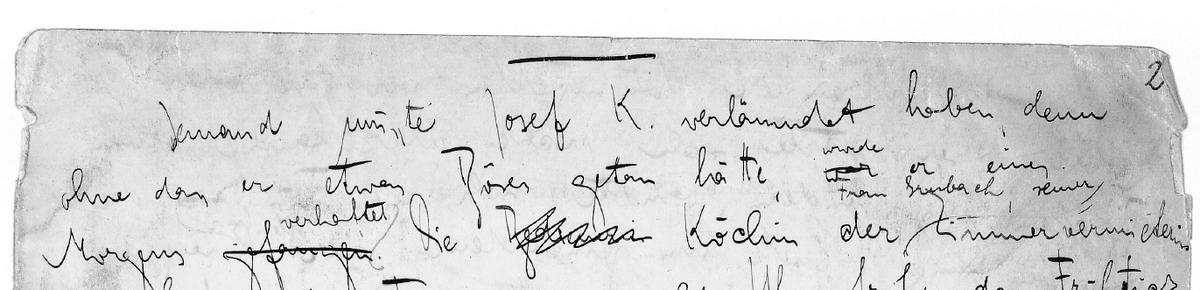 2
Jemand mußte Josef K. verläumdet haben, denn
ohne dass er etwas Böses getan hätte, war wurde er eines
Morgens gefangen verhaftet. Die Köchin der Frau Grubach, seiner Zimmervermieterin